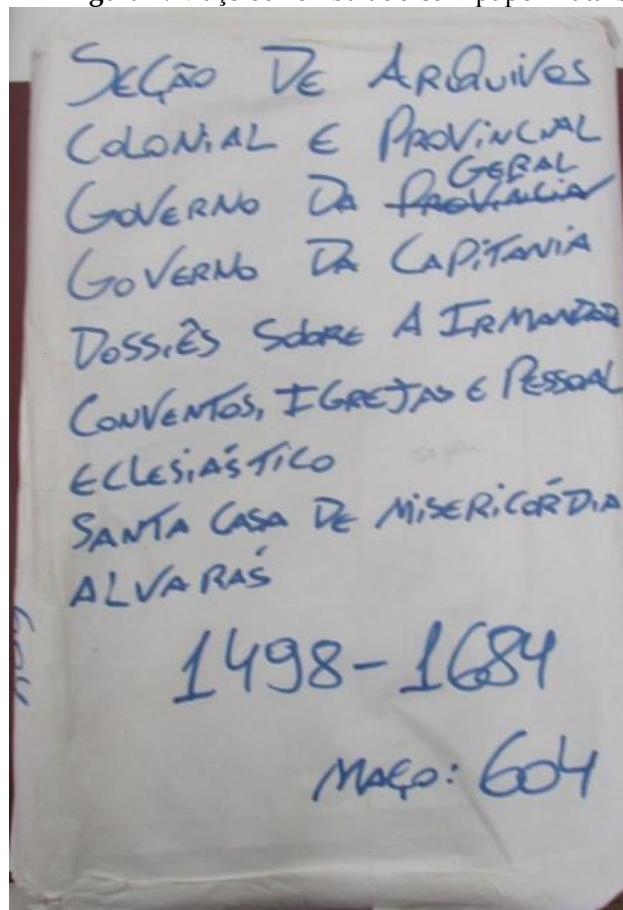 SEÇÃO DE ARQUIVOS
COLONIAL E PROVINCIAL
GOVERNO DA PROVINCIA GERAL
GOVERNO DA CAPITANIA
DOSSIÊS SOBRE A IRMANDAD
CONVENTOS, IGREJAS E PESSOAL
ECLESIÁSTICO
SANTA CASA DE MISERICÓRDIA
ALVARÁS
1498-1684
MAÇO: 604
604